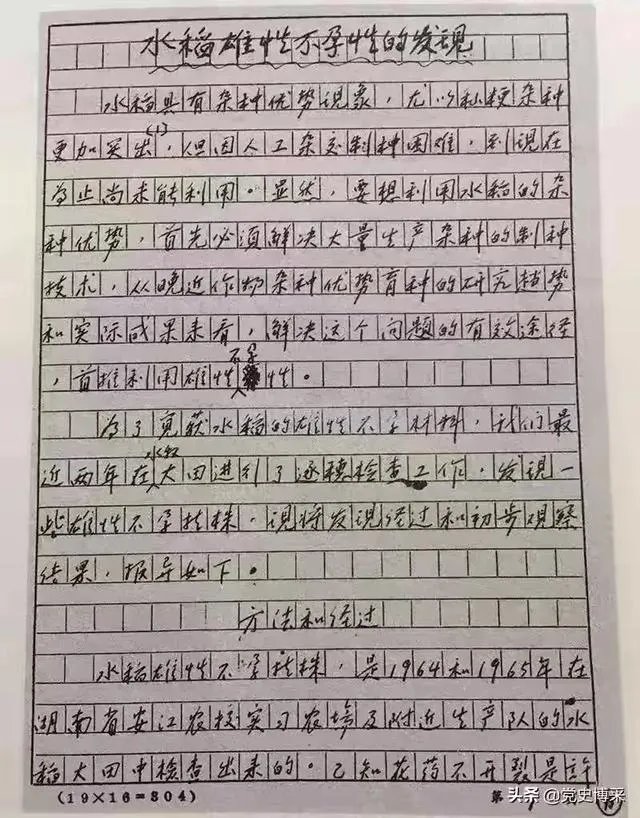 水稻雄性不孕性的发现
水稻具有杂种优势现象，尤以籼粳杂种
更加突出(1)，但因人工杂交制种困难，到现在
为止尚未能利用。显然，要想利用水稻的杂
种优势，首先必须解决大量生产杂种的制种
技术，从晚近作物杂种优势育种的研究趋势
和实际成果来看，解决这个问题的有效途径
，首推利用雄性不孕性。
为了寻获水稻的雄性不孕材料，我们最
近两年在水稻大田进行了逐穗检查工作，发现一
些雄性不孕植株，现将发现经过和初步观察
结果，报导如下。
方法和经过
水稻雄性不孕植株，是1964和1965年在
湖南省安江农校实习农场及附近生产队的水
稻大田中检查出来的。已知花药不开裂是许
(19×16=304)
第
头条 @党史博采